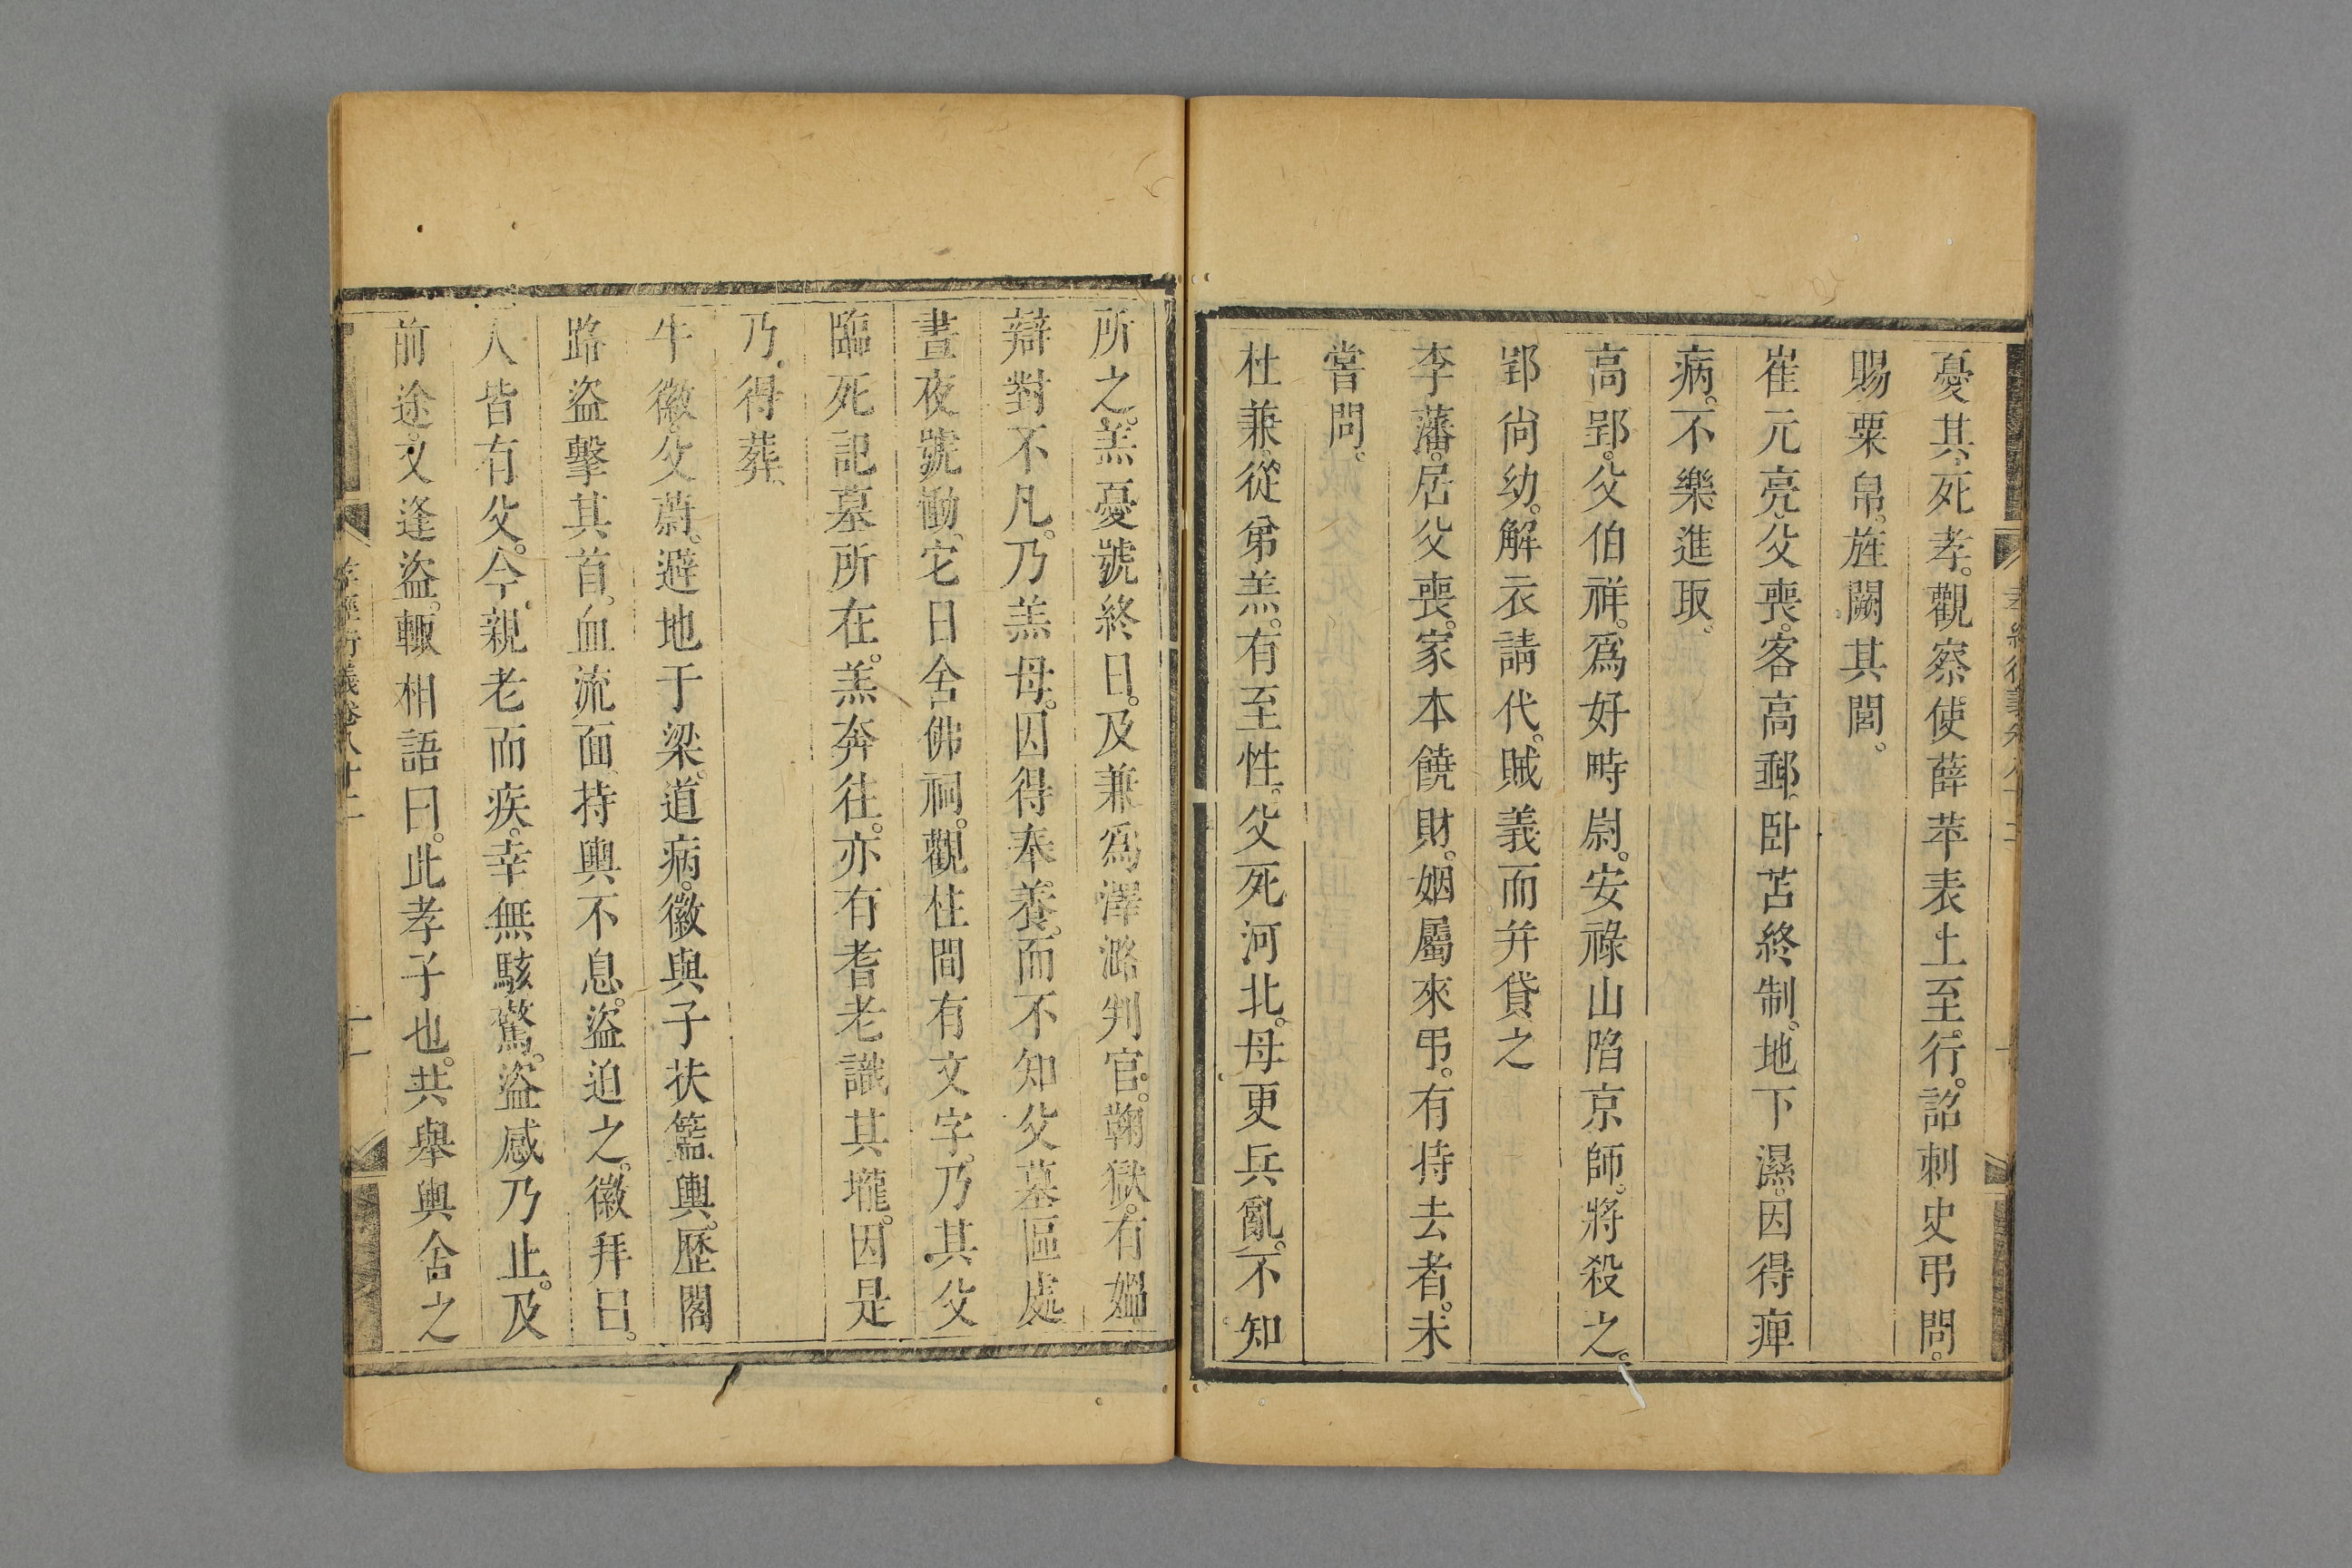 憂其死孝。觀察使薛苹表土至行。詔刺史弔問。
賜粟帛。旌闕其閭。
崔元亮。父喪。客高郵。卧苫終制。地下濕。因得痺
病。不樂進取。
高郢。父伯祥。爲好畤尉。安祿山陷京師。將殺之。
郢尚幼。解衣請代。賊義而并貸之
李藩。居父喪。家本饒財。姻屬來弔。有持去者。未
嘗問。
杜兼。從弟羔。有至性。父死河北。母更兵亂。不知
所之。羔憂號終日。及兼爲澤潞判官。鞫獄。有媼
辯對不凡。乃羔母。因得奉養。而不知父墓區處
晝夜號慟。它日舍佛祠。觀柱間有文字。乃其父
臨死記墓所在。羔奔往。亦有耆老識其壠。因是
乃得葬
牛徽。父蔚。避地于梁。道病。徽與子扶籃輿。歷閣
路盜擊其首。血流面。持輿不息。盜迫之。徽拜曰。
人皆有父。今親老而疾。幸無駭驚。盜感乃止。及
前途。又逢盜。輒相語曰。此孝子也。共舉輿舍之
孝經衍義卷八十二